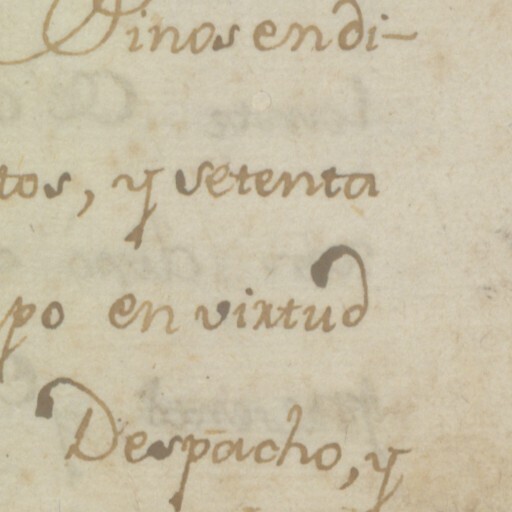 Dinos en di-
tos, y setenta
po en virtud
Despacho, y